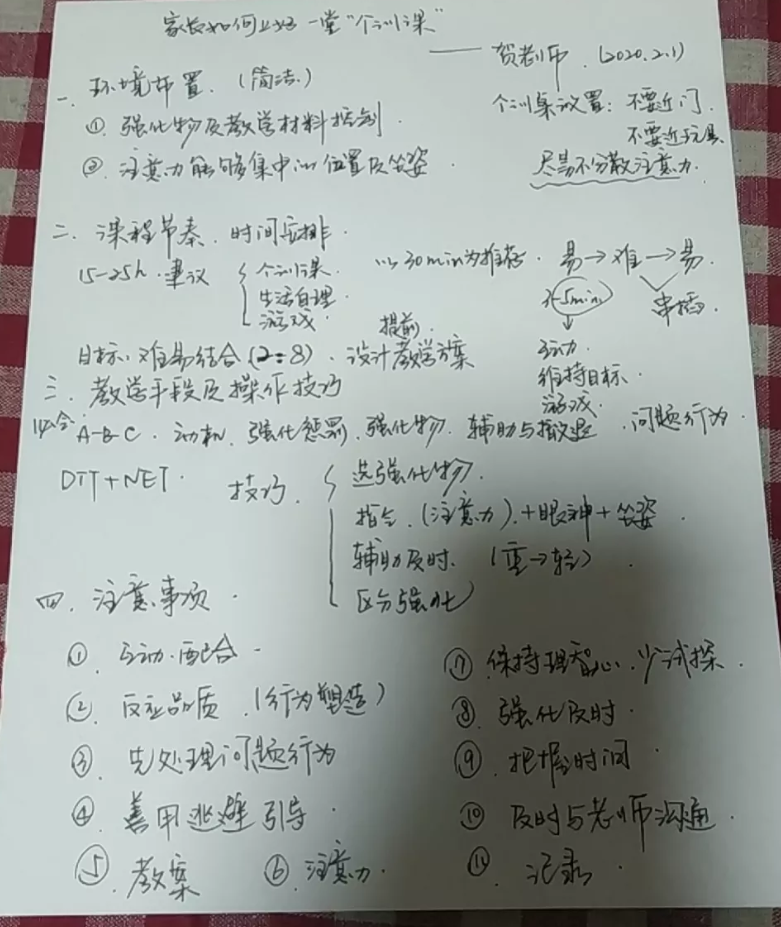 家长如何上好一堂“个训课”
—— 贺老师.(2020.2.1)
一、环境布置.(简洁.)
① 强化物及教学材料控制.
② 注意力能够集中的位置及坐姿.
个训桌放置: 不要近门.
不要近玩具
尽量不分散注意力.
二、课程节奏.时间安排.
15-25h.建议 { 个训课.
生活自理.
游戏.
以30min为推荐.
易→难→易.
3-5min
串插.
互动.
维持目标.
游戏.
目标:难易结合(2:8).提前.设计教学方案
三、教学手段及操作技巧
必会 A-B-C.动机.强化惩罚.强化物.辅助与撤退.问题行为.
DTT+NET.
技巧. { 选强化物.
指令.(注意力).+眼神+坐姿.
辅助及时.(重→轻).
区分强化
四、注意事项.
①.互动.配合.
②.反应品质.(行为塑造)
③.先处理问题行为
④.善用逃避引导.
⑤.教案
⑥.注意力.
⑦.保持理智心.少试探.
⑧.强化及时.
⑨.把握时间.
⑩.及时与老师沟通.
⑪.记录.